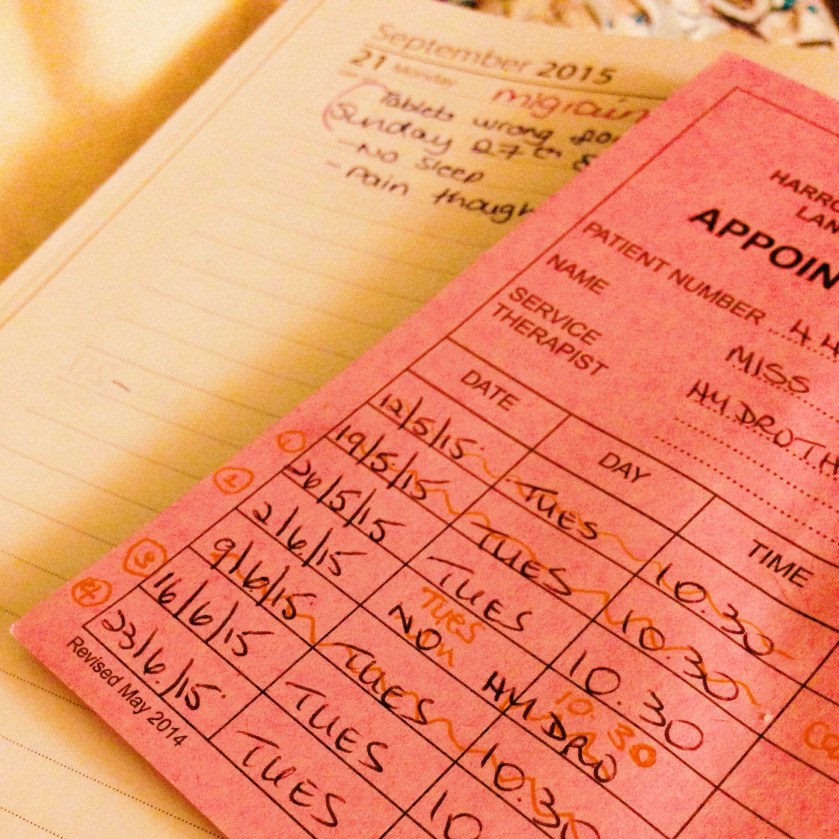 September 2015
21 Monday
migrain
Tablets wrong
Sunday 27th
- No Sleep
- Pain though
HARRO
LAN
APPOIN
PATIENT NUMBER 44
NAME MISS
SERVICE HYDROTH
THERAPIST
DATE DAY TIME
12/5/15 TUES 10.30
19/5/15 TUES 10.30
1 26/5/15 TUES 10.30
2 2/6/15 NO HYDRO
Tues 10.30
9/6/15 TUES 10.30
3 16/6/15 TUES 10
4 23/6/15 TUES
Revised May 2014